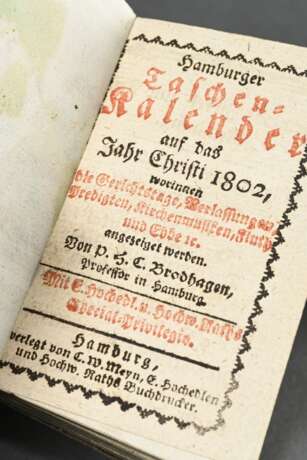 Hamburger
Taschen-
Kalender
auf das
Jahr Christi 1802,
worinnen
die Gerichtstage, Verlassungen,
Predigten, Kirchenmusiken, Fluth
und Ebbe ꝛc.
angezeiget werden.
Von P. H. C. Brodhagen,
Professor in Hamburg.
Mit E. Hochedl. u. Hochw. Raths
Special-Privilegio.
Hamburg,
verlegt von C. W. Meyn, E. Hochedlen
und Hochw. Raths Buchdrucker.